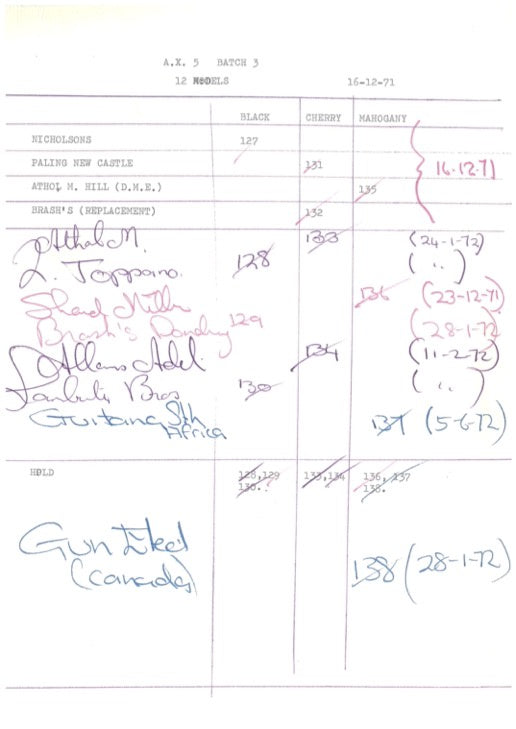 A.X. 5 BATCH 3
12 MODELS 16-12-71
BLACK CHERRY MAHOGANY
NICHOLSONS 127
PALING NEW CASTLE 131
16.12.71
ATHOL M. HILL (D.M.E.) 135
BRASH'S (REPLACEMENT) 132
Athol M. 133 (24-1-72)
L. Toppano. 128 ( " )
136 (23-12-71)
Brash's 129 (28-1-72)
Allans Adel. 134 (11-2-72)
Bros 130 ( " )
Guitars Sth Africa 137 (5-6-72)
HOLD 128,129 133,134 136, 137
130. 138.
Gun
(Canada) 138 (28-1-72)